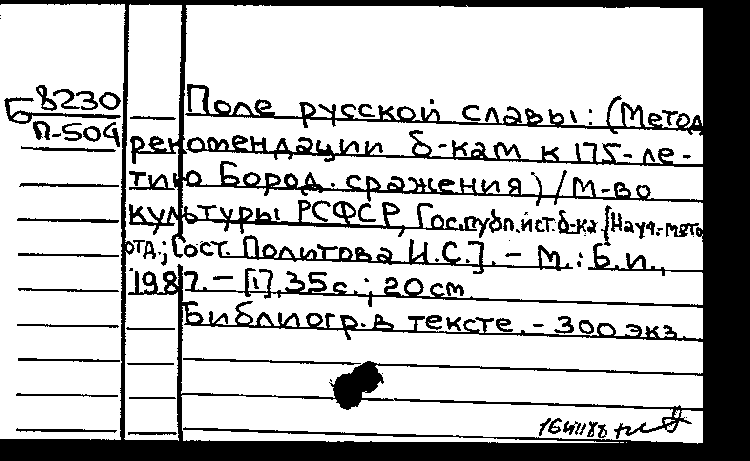 Б 8230
П-504
Поле русской славы: (Метод
рекомендации б-кам к 175-ле-
тию Бород. сражения) / М-во
культуры РСФСР, Гос.публ.ист.б-ка. [Науч.-мето
отд.; Сост. Политова И.С.]. - М.: Б.и.,
1987. - [1], 35 с.; 20 см
Библиогр. в тексте. - 300 экз.